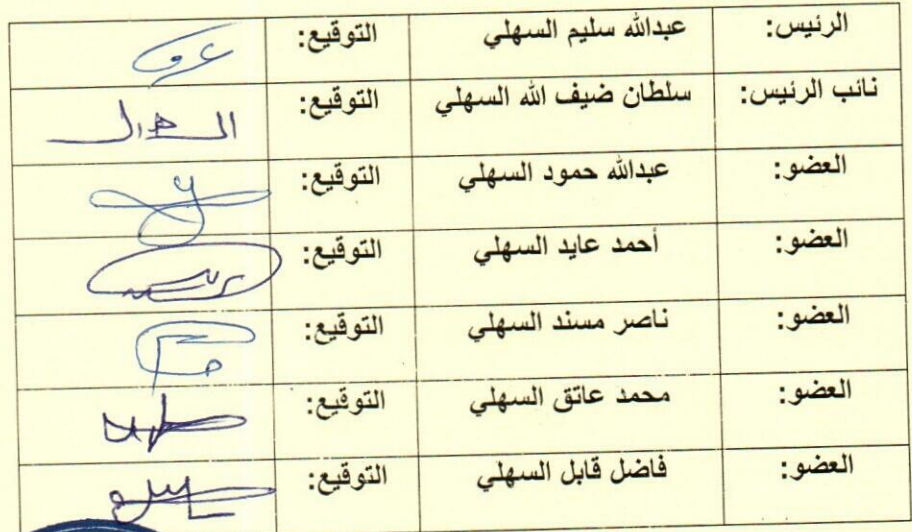 الرئيس: عبدالله سليم السهلي التوقيع:
نائب الرئيس: سلطان ضيف الله السهلي التوقيع:
العضو: عبدالله حمود السهلي التوقيع:
العضو: أحمد عايد السهلي التوقيع:
العضو: ناصر مسند السهلي التوقيع:
العضو: محمد عاتق السهلي التوقيع:
العضو: فاضل قابل السهلي التوقيع: